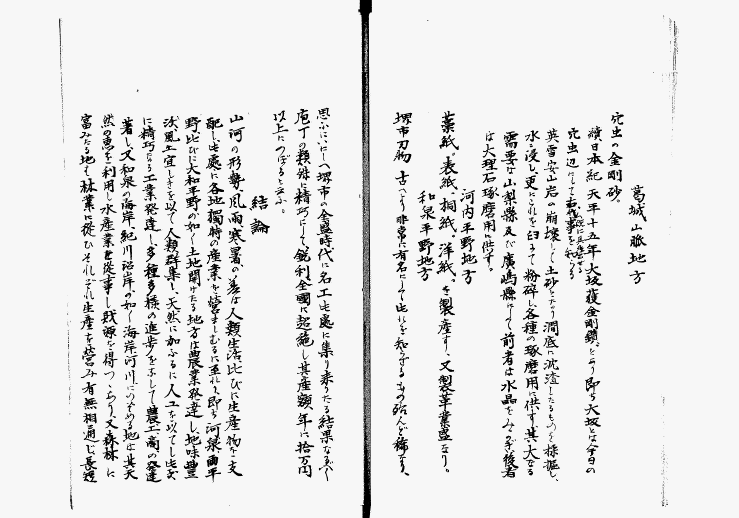 葛城山脈地方
穴虫の金剛砂。
續日本紀 天平十五年大坂獲金剛鑽。とあり即ち大坂は今日の
穴虫辺にして
英雲安山岩の崩壊して土砂となり澗底に沈渣したるものを採掘し
水に浸し更にこれを臼にて粉砕し各種の琢磨用に供す其大なる
需要は山梨縣及び廣嶋縣にして前者は水晶をみがき後者
は大理石琢磨用に供す。
河内平野地方
葉紙。表紙。桐紙。洋紙。を製産す。又製革業盛なり。
和泉平野地方
堺市刃物 古へより非常に有名にして此れを知らざるもの殆んど稀なり、
思ふにいにしへ堺市の全盛時代に名工此處に集り来りたる結果なるべし
庖丁の類殊に精巧にして鋭利全國に超絶し其産額年に拾万円
以上にのぼると云ふ。
結論
山河の形勢、風雨寒暑の差は人類生活比びに生産物を支
配し此處に各地獨特の産業を營ましむるに至れり、即ち河泉両平
野比びに大和平野の如し土地開けたる地方は農業発達し、地味豊
沃風土宜しきを以て人類群集し、天然に加ふるに人工を以てし此處
に精巧なる工業発達し多種多様の進歩をなして農工商の発達
著し又和泉の海岸、紀川沿岸の如し海岸河川にのぞめる地は其天
然の恵を利用し水産業に従事し財源を得つゝあり、又森林に
富みたる地も林業に従ひそれぞれ生産を営み有無相通じ長短